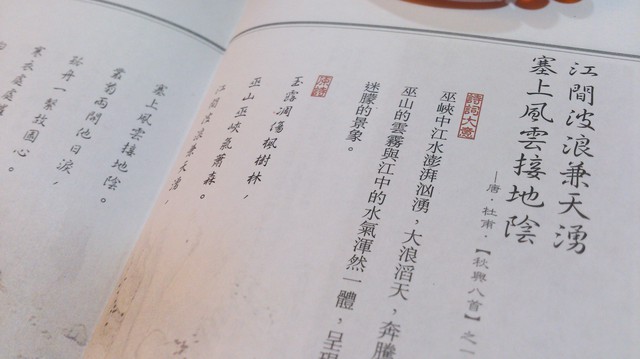 江間波浪兼天湧
塞上風雲接地陰
—唐.杜甫.【秋興八首】之一
詩詞大意
巫峽中江水澎湃洶湧，大浪滔天，奔騰
巫山的雲霧與江中的水氣渾然一體，呈現
迷朦的景象。
玉露凋傷楓樹林，
巫山巫峽氣蕭森。
江間波浪兼天湧，
塞上風雲接地陰。
叢菊兩開他日淚，
孤舟一繫故園心。
寒衣處處催